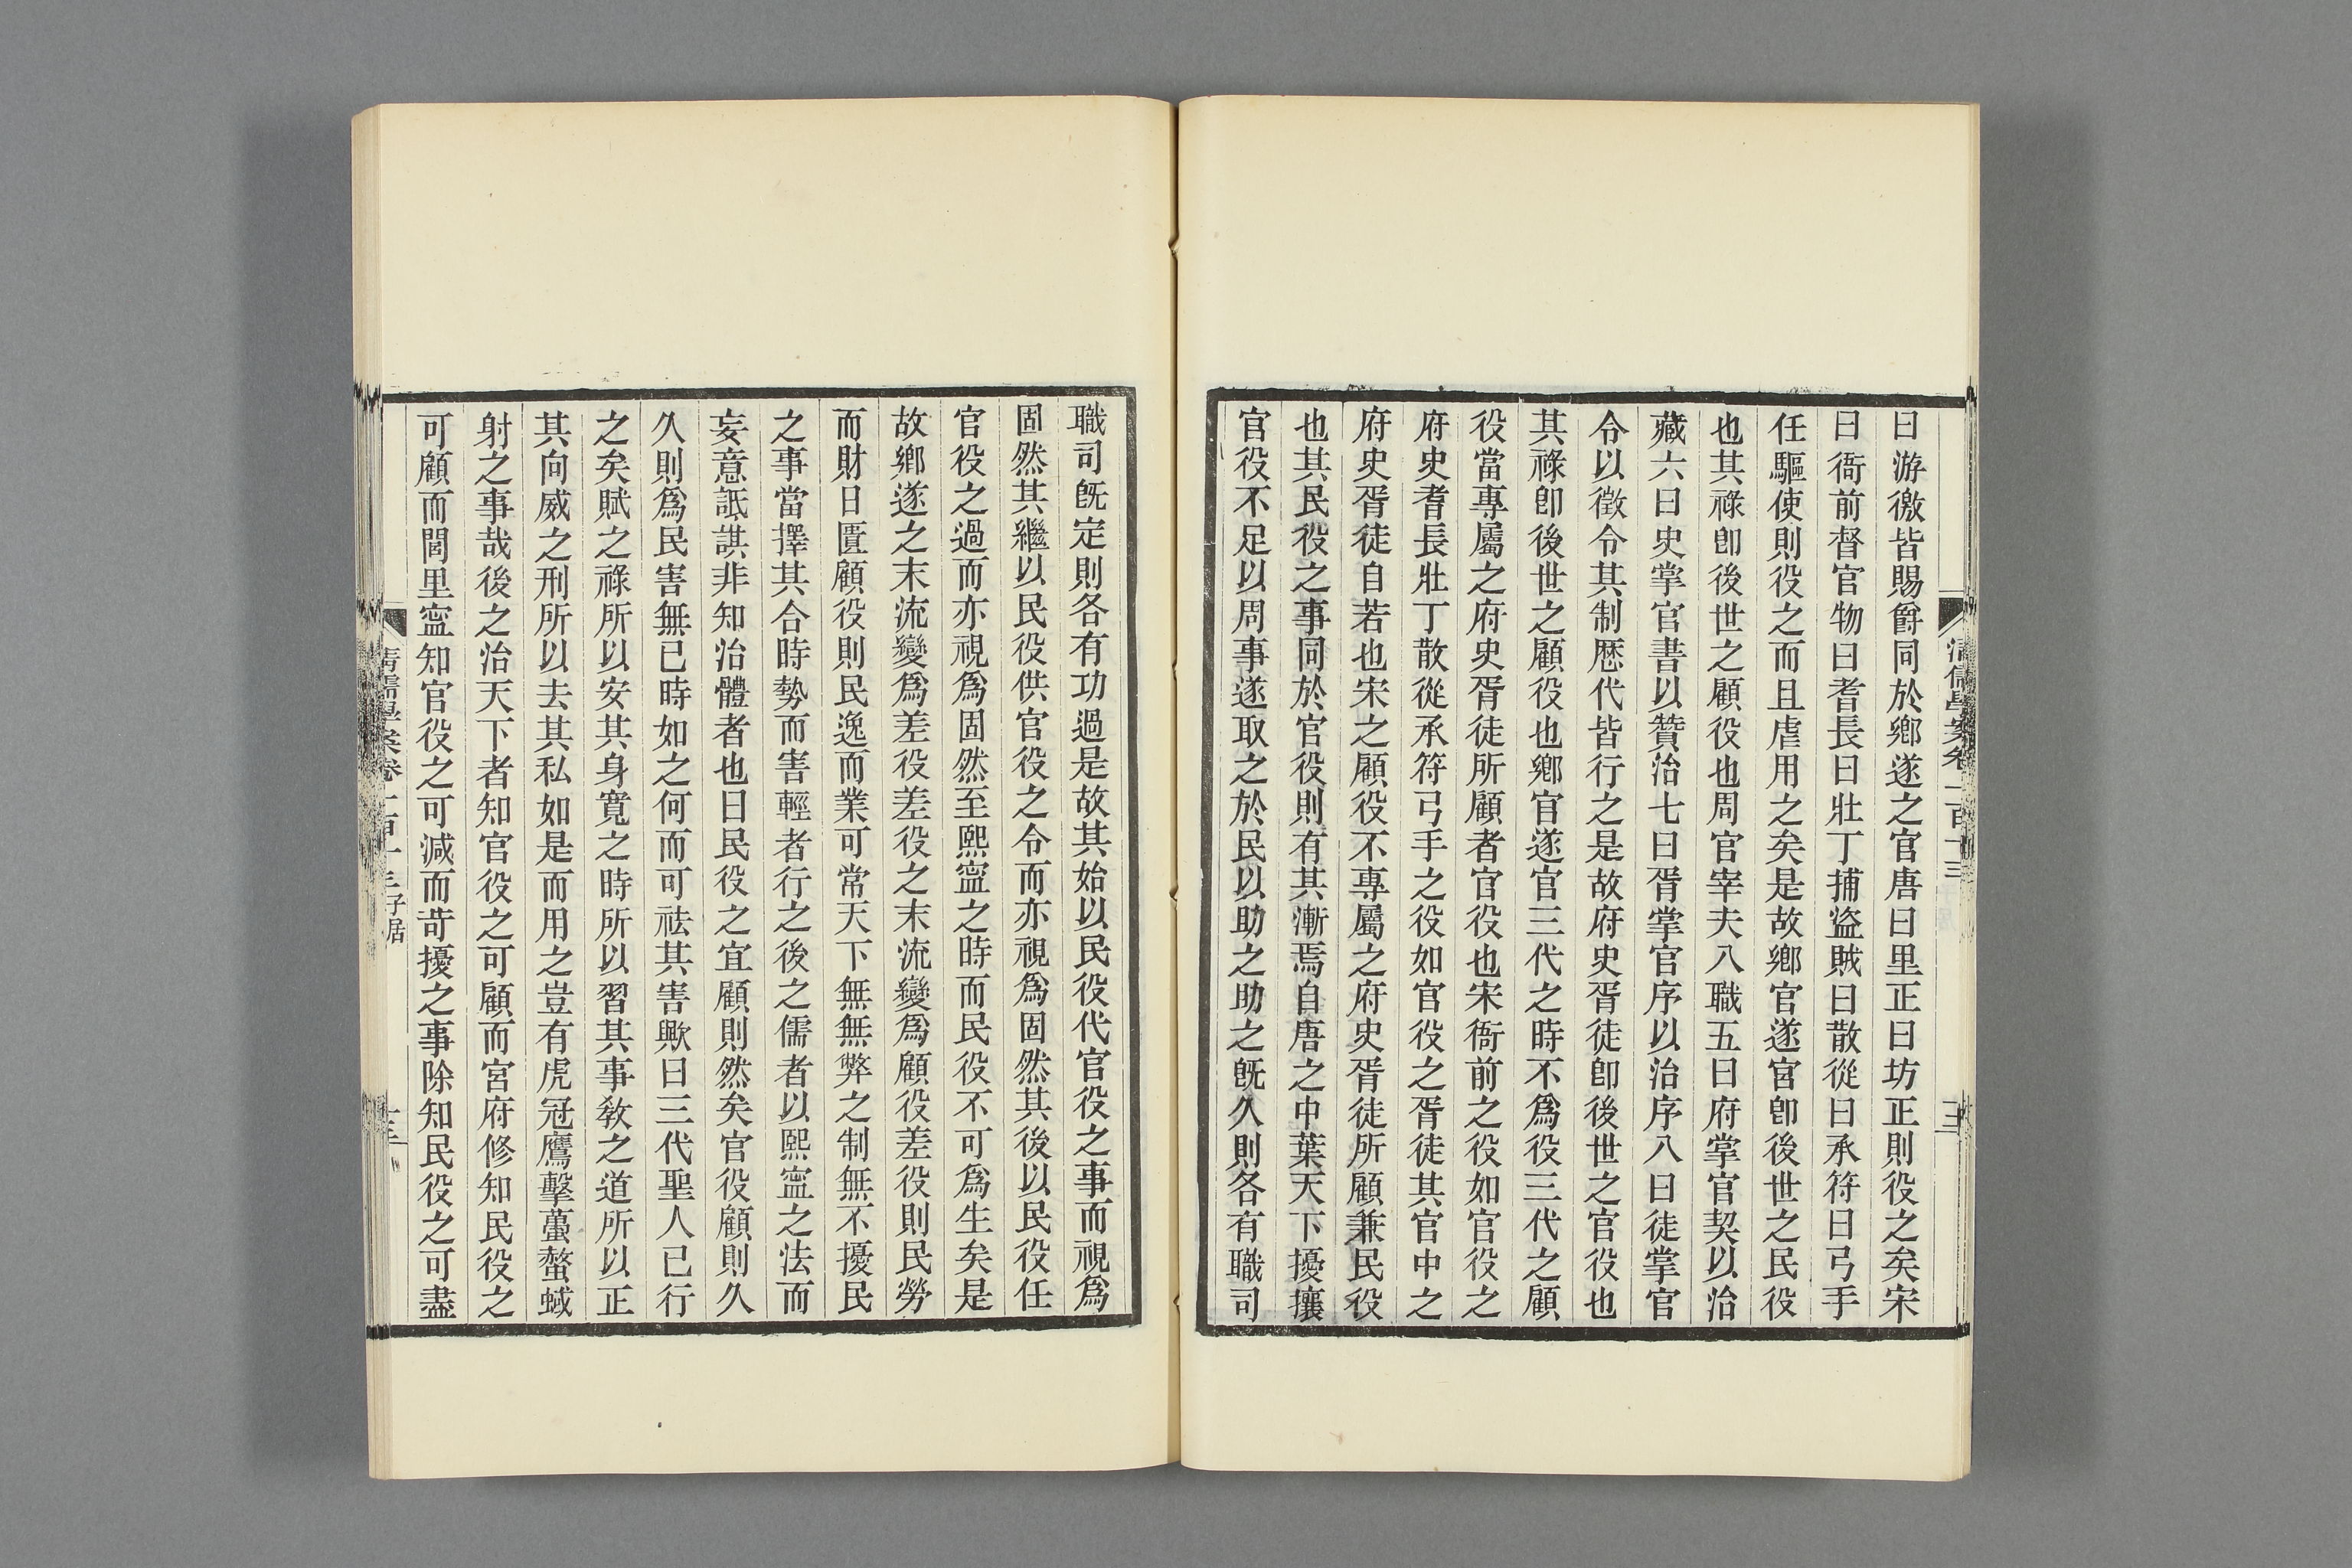 曰游徼皆賜爵同於鄉遂之官唐曰里正曰坊正則役之矣宋
曰衙前督官物曰耆長曰壯丁捕盜賊曰散從曰承符曰弓手
任驅使則役之而且虐用之矣是故鄉官遂官卽後世之民役
也其祿卽後世之顧役也周官宰夫八職五曰府掌官契以治
藏六曰史掌官書以贊治七曰胥掌官序以治序八曰徒掌官
令以徵令其制歷代皆行之是故府史胥徒卽後世之官役也
其祿卽後世之顧役也鄉官遂官三代之時不爲役三代之顧
役當專屬之府史胥徒所顧者官役也宋衙前之役如官役之
府史耆長壯丁散從承符弓手之役如官役之胥徒其官中之
府史胥徒自若也宋之顧役不專屬之府史胥徒所顧兼民役
也其民役之事同於官役則有其漸焉自唐之中葉天下擾攘
官役不足以周事遂取之於民以助之助之旣久則各有職司
職司旣定則各有功過是故其始以民役代官役之事而視爲
固然其繼以民役供官役之令而亦視爲固然其後以民役任
官役之過而亦視爲固然至熙寧之時而民役不可爲生矣是
故鄉遂之末流變爲差役差役之末流變爲顧役差役則民勞
而財日匱顧役則民逸而業可常天下無無弊之制無不擾民
之事當擇其合時勢而害輕者行之後之儒者以熙寧之法而
妄意詆諆非知治體者也曰民役之宜顧則然矣官役顧則久
久則爲民害無已時如之何而可袪其害歟曰三代聖人已行
之矣賦之祿所以安其身寬之時所以習其事敎之道所以正
其向威之刑所以去其私如是而用之豈有虎冠鷹擊蠆螫蜮
射之事哉後之治天下者知官役之可顧而宮府修知民役之
可顧而閭里寧知官役之可減而苛擾之事除知民役之可盡
清儒學案卷一百十三 子居